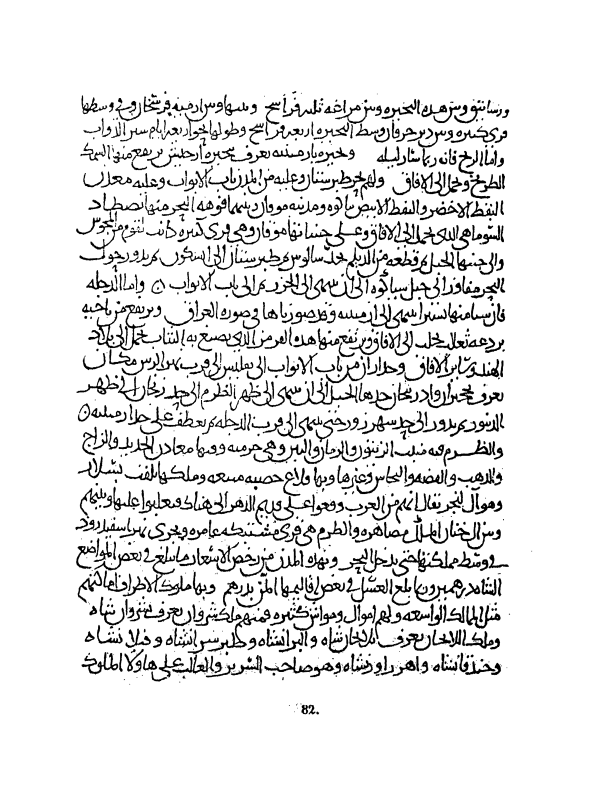 ورساتيق وبين هذه البحيرة وبين مراغة ثلثة فراسخ وبينها وبين ارمية فرسخان وفي وسطها
قرى كثيرة وبين دبر حرقان وسط البحيرة اربعة فراسخ وطولها نحو اربعة ايام سير الدواب
واما الريح فانه ربما سار ليلة وبحيرة بارمينية تعرف ببحيرة ارجيش يرتفع منها السمك
الطريخ ويحمل الى الافاق ولهم بحر طبرستان وعليه من المدن باب الابواب وعليه معدن
النفط الاخضر والنفط الابيض بباكوه ومدينة موقان وبينهما فوهة البحر منها تصطاد
السوماهى الذى يحمل الى الافاق وعلى جنباتها موقان وهى قرى كثيرة كانت لقوم من المجوس
والى جنبها الجيل ثم قطعة من الديلم بحد سالوس ثم طبرستان الى ابسكون ثم يدور حول
البحر مفاوز الى جبل سياكوه الى ان ينتهى الى الخزر ثم الى باب الابواب واما الدجلة
فان شيئا منها يسير ينتهى الى ارمينية وقد صورناها فى صورة العراق ويرتفع من ناحية
بردعة بغال تجلب الى الافاق ويرتفع منها هذه القرمز الذى يصبغ به الثياب يحمل الى بلاد
الهند وسائر الافاق وحد اران من باب الابواب الى تفليس الى قرب نهر الرس مكان
يعرف بحجيران واذربيجان حدها الجبل الى ان ينتهى الى ظهر الطرم الى حد زنجان الى ظهر
الدينور ثم يدور الى حد سهرزور حتى ينتهى الى قرب الدجلة ثم يعطف على حد ارمينية
والطرم فيه منبت الزيتون والرمان والتين وهى خرمية وفيها معادن الحديد والزاج
والذهب والفضة والنحاس وغيرها وبها قلاع حصينة منيعة وملكها يلقب بسلار
وهو ال لنجر يقال انهم من العرب وقعوا على قديم الدهر الى هناك فتغلبوا عليها وبينهم
وبين ال جنان الديلم مصاهرة والطرم هى قرى مشتبكة عامرة ويجرى نهر اسفيدرود
فى وسط مملكتها حتى يدخل البحر وبهذه المدن من رخص الاسعار ما تبلغ فى بعض المواضع
الشاة درهمين وربما بلغ العسل فى بعض اقاليمها المن بدرهم وبها ملوك الاطراف لها لهم
مثل الممالك الواسعة ولهم اموال ومواش كثيرة فمنهم ملك شروان يعرف بشروان شاه
وملك اللايجان يعرف بلايجان شاه والبرانشاه وطبرسرانشاه وفيلانشاه
وخندقانشاه وهو صاحب السرير والغالب على هاولا الملوك
82.